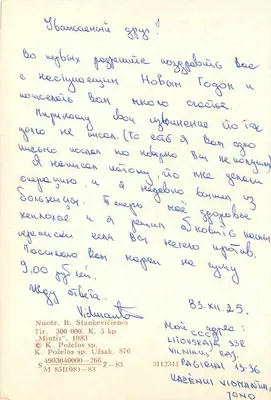 Уважаемый друг!
Во первых разрешите поздравить Вас
с наступающим Новым Годом и
пожелать Вам много счастья.
Приношу свои извинение
долго не писал. (То есть я Вам одно
письмо послал но наверно Вы не получили)
Я написал потому, что мне делали
операцию и я недавно вышел из
больницы. Теперь моё здоровье
неплохое и я решил
переписки если Вы нечего против.
Посылаю Вам марки на сумму
9,00 рублей.
Жду ответа.
Vidmantas
83.XII.25.
Nuotr. R. Stankevičienės
Tir. 300 000. K. 5 kp
"Mintis", 1983
© K. Poželos sp.
K. Poželos sp. Užsak. 876
4903040000—266
S Z—83
M 851(08)—83
3112311
Мой адрес:
СССР
LITOVSKAJA SSR
VILNIUS
PAGIRIAI 13-36
KAZĖNUI VIDMANTUI
JONO